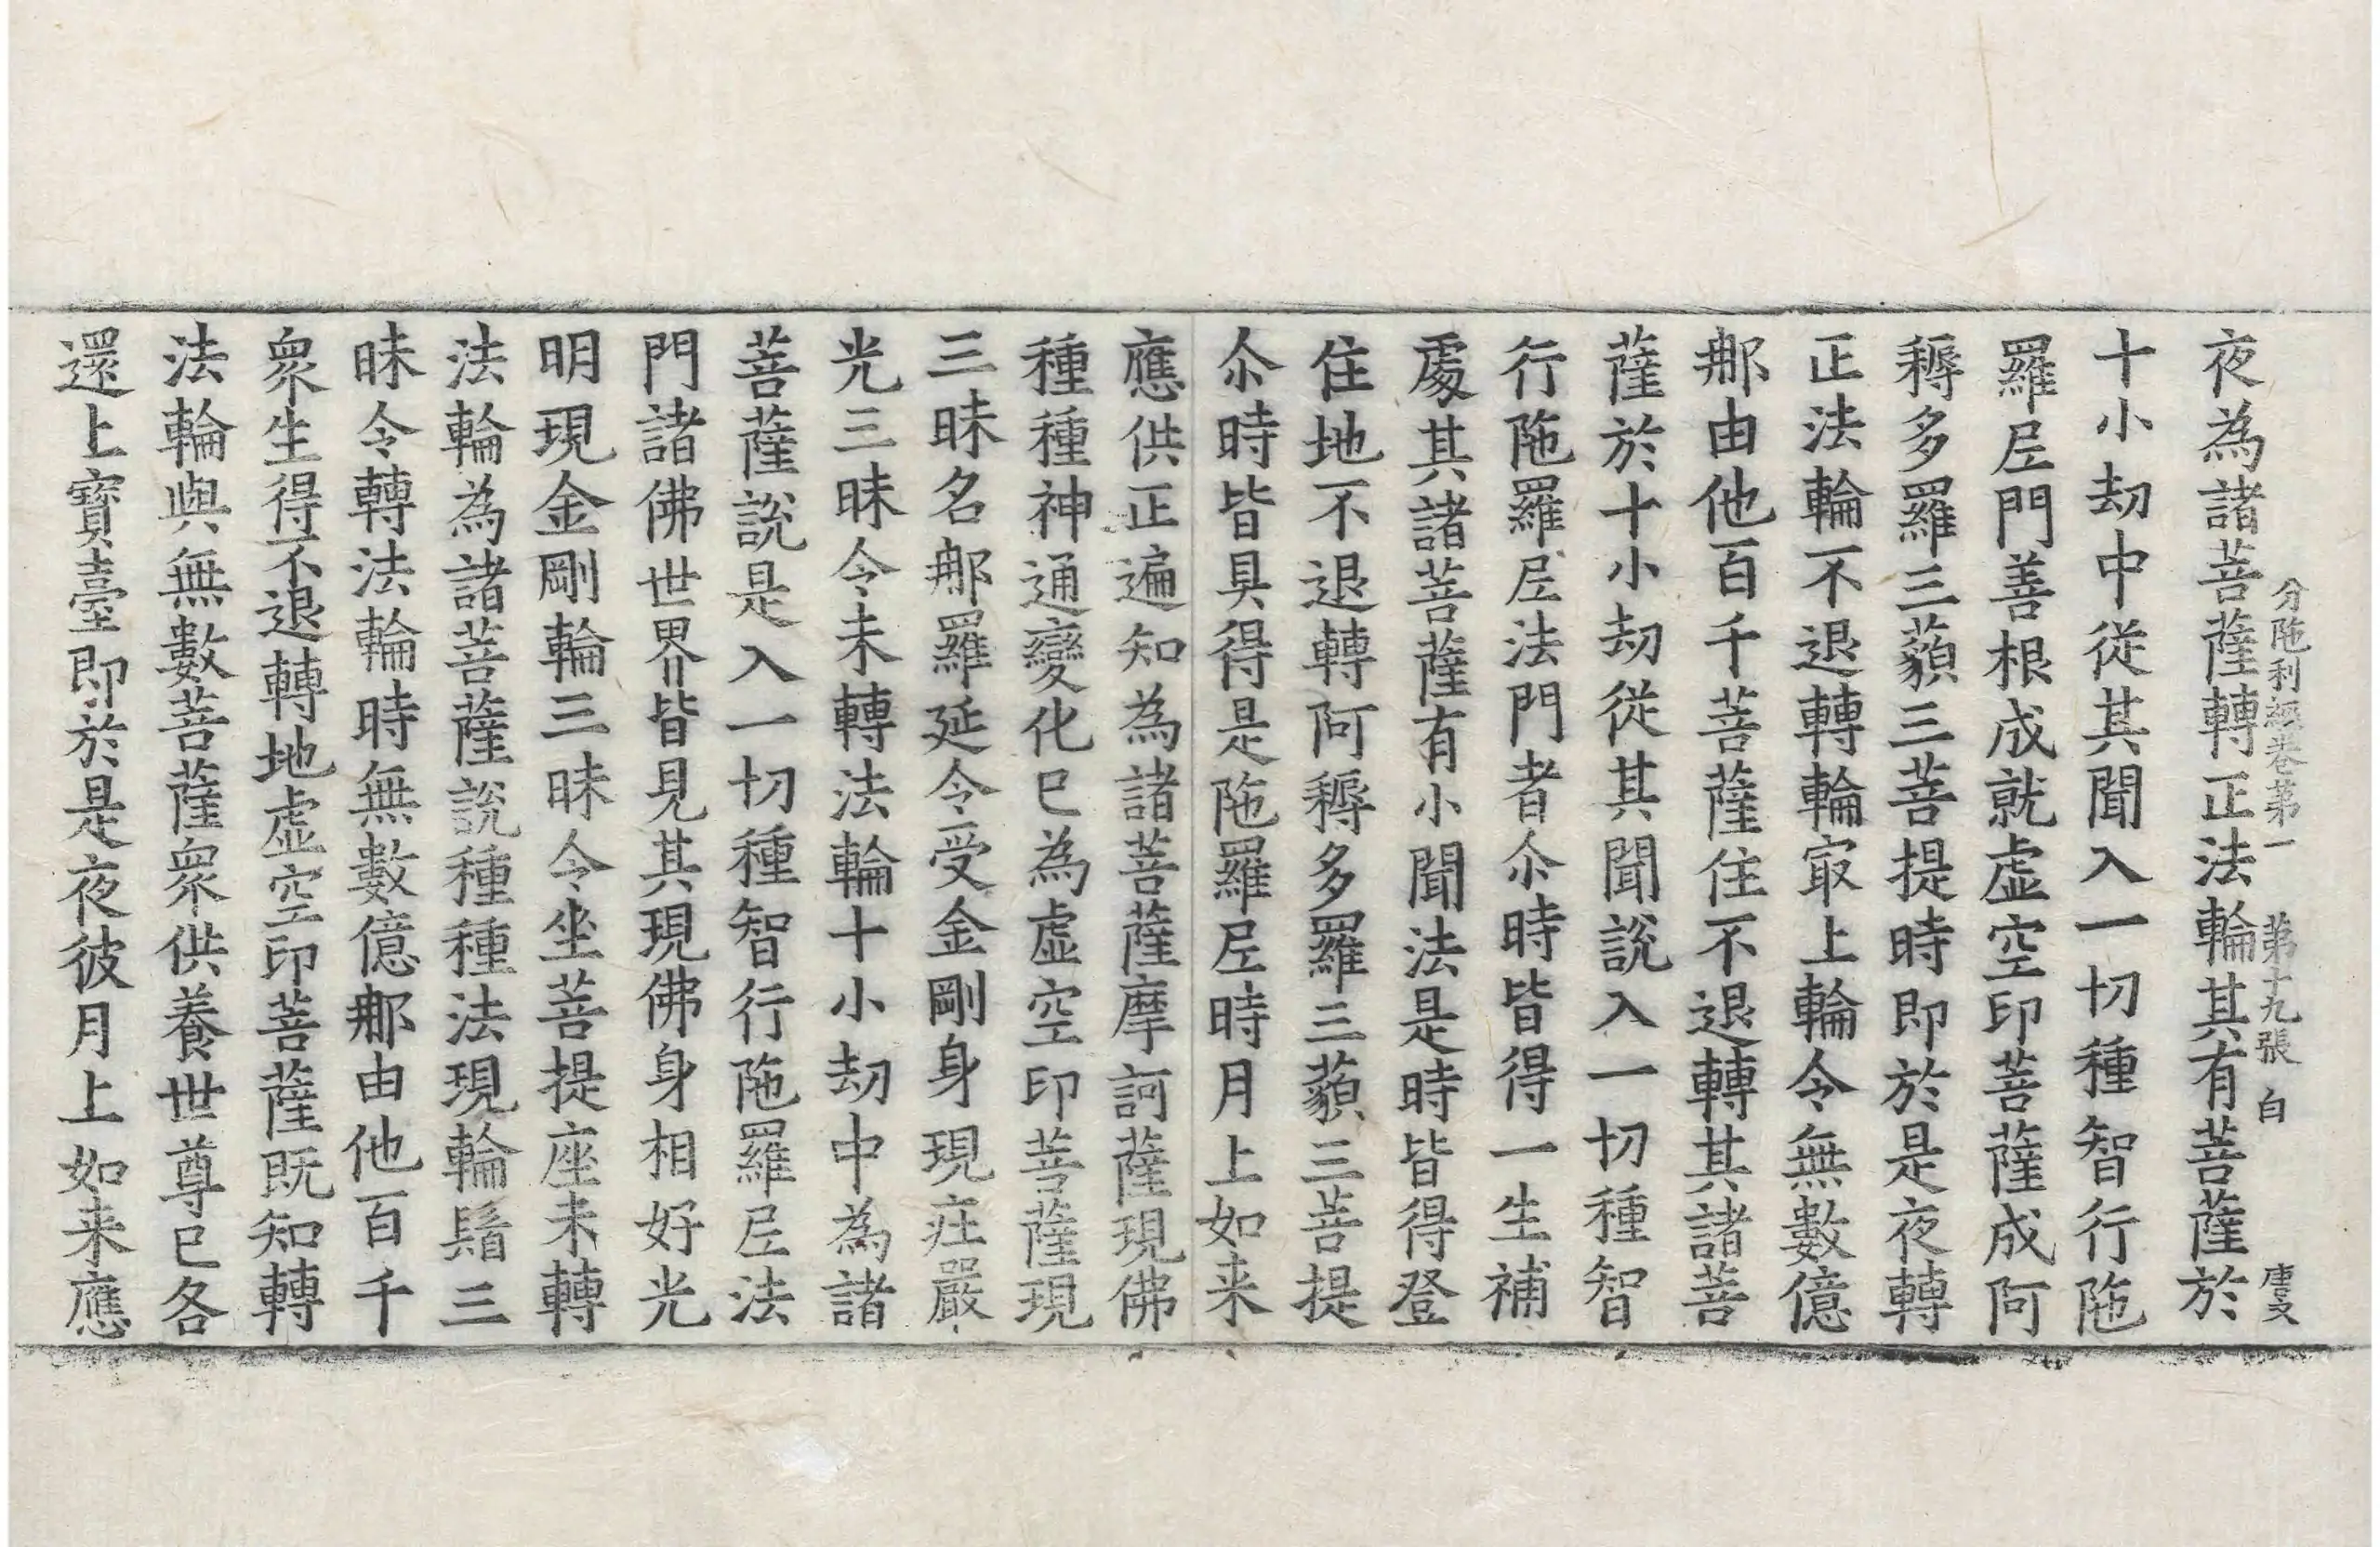 分陁利經卷第一 第十九張 白 唐文
夜為諸菩薩轉正法輪其有菩薩於
十小劫中從其聞入一切種智行陁
羅尼門善根成就虛空印菩薩成阿
耨多羅三藐三菩提時即於是夜轉
正法輪不退轉輪㝡上輪令無數億
那由他百千菩薩住不退轉其諸菩
薩於十小劫從其聞說入一切種智
行陁羅尼法門者尒時皆得一生補
處其諸菩薩有小聞法是時皆得登
住地不退轉阿耨多羅三藐三菩提
尒時皆具得是陁羅尼時月上如来
應供正遍知為諸菩薩摩訶薩現佛
種種神通變化已為虛空印菩薩現
三昧名那羅延令受金剛身現莊嚴
光三昧令未轉法輪十小劫中為諸
菩薩說是入一切種智行陁羅尼法
門諸佛世界皆見其現佛身相好光
明現金剛輪三昧令坐菩提座未轉
法輪為諸菩薩說種種法現輪鬘三
昧令轉法輪時無數億那由他百千
衆生得不退轉地虛空印菩薩既知轉
法輪與無數菩薩衆供養世尊已各
還上寶臺即於是夜彼月上如来應